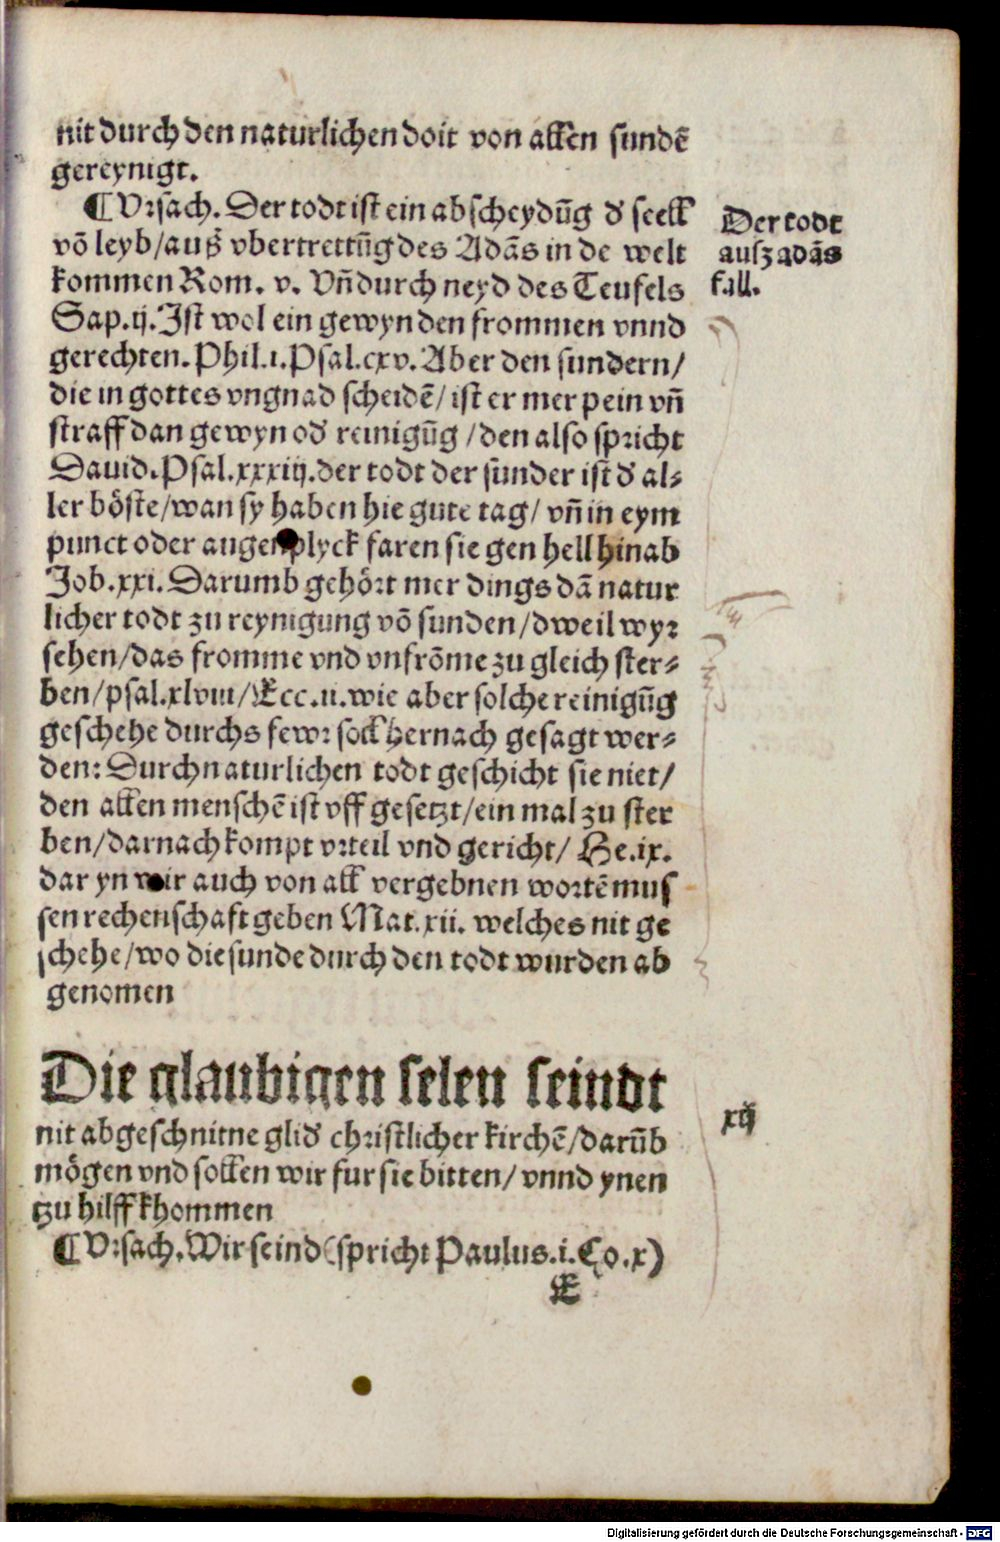 nit durch den naturlichen doit von allen sundē
gereynigt.
¶ Vrsach. Der todt ist ein abscheydūg d̕ seell
vō leyb/ausz vbertrettūg des Adās in de welt
kommen Rom. v. Vn̄ durch neyd des Teufels
Sap.ij. Ist wol ein gewyn den frommen vnnd
gerechten. Phil.i. Psal.cxv. Aber den sundern/
die in gottes vngnad scheidē/ ist er mer pein vn̄
straff dan gewyn od̕ reinigūg /den also spricht
Dauid. Psal.xxxiij. der todt der sunder ist d̕ al⸗
ler böste/wan sy haben hie gute tag/ vn̄ in eym
punct oder augenplyck faren sie gen hell hinab
Job.xxi. Darumb gehört mer dings dā natur
licher todt zu reynigung vō sunden/dweil wyr
sehen/das fromme vnd vnfrōme zu gleich ster⸗
ben/psal.xlviii/Ecc.ii.wie aber solche reinigūg
geschehe durchs fewr soll hernach gesagt wer⸗
den: Durch naturlichen todt geschicht sie niet/
den allen menschē ist vff gesetzt/ein mal zu ster
ben/darnach kompt vrteil vnd gericht/ He.ix.
dar yn wir auch von all vergebnen wortē mus
sen rechenschaft geben Mat.xii. welches nit ge
schehe/wo die sunde durch den todt wurden ab
genomen
Der todt
ausz adās
fall.
Die glaubigen selen seindt
nit abgeschnitne glid̕ christlicher kirchē/darūb
mögen vnd sollen wir fur sie bitten/ vnnd ynen
tzu hilff khommen
xij
¶ Vrsach. Wir seind (spricht Paulus.i.Co.x)
E
Digitalisierung gefördert durch die Deutsche Forschungsgemeinschaft - DFG